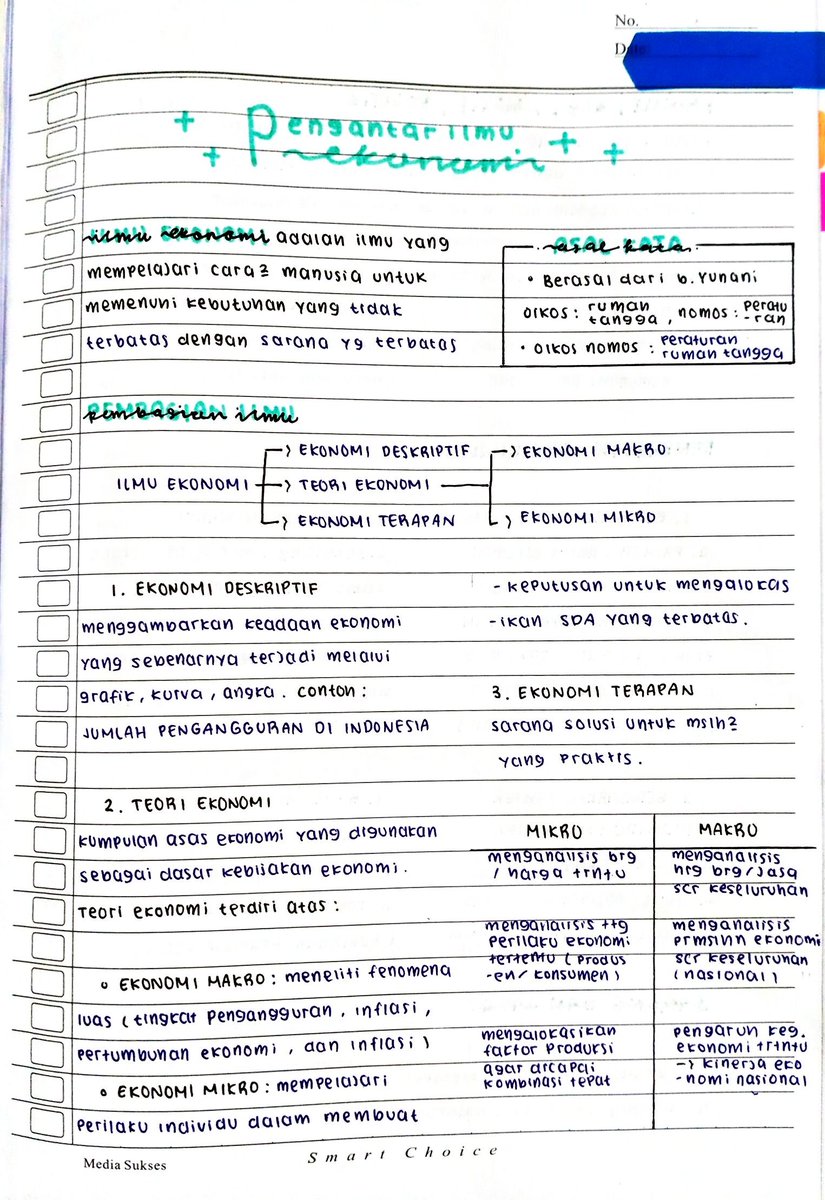 No.
Date
Pengantar ilmu
ekonomi
ilmu ekonomi adalah ilmu yang
mempelajari cara2 manusia untuk
memenuhi kebutuhan yang tidak
terbatas dengan sarana yg terbatas
asal kata
• Berasal dari b. Yunani
oikos : rumah tangga , nomos : peratu-ran
• oikos nomos : peraturan rumah tangga
pembagian ilmu
ILMU EKONOMI
EKONOMI DESKRIPTIF
TEORI EKONOMI
EKONOMI TERAPAN
EKONOMI MAKRO
EKONOMI MIKRO
1. EKONOMI DESKRIPTIF
menggambarkan keadaan ekonomi
yang sebenarnya terjadi melalui
grafik, kurva, angka. contoh :
JUMLAH PENGANGGURAN DI INDONESIA
2. TEORI EKONOMI
kumpulan asas ekonomi yang digunakan
sebagai dasar kebijakan ekonomi.
Teori ekonomi terdiri atas :
o EKONOMI MAKRO : meneliti fenomena
luas (tingkat pengangguran, inflasi,
pertumbuhan ekonomi, dan inflasi)
o EKONOMI MIKRO : mempelajari
perilaku individu dalam membuat
- keputusan untuk mengalokas
-ikan SDA yang terbatas.
3. EKONOMI TERAPAN
sarana solusi untuk mslh2
yang praktis.
MIKRO
menganalisis brg
/ harga trntu
menganalisis ttg
perilaku ekonomi
tertentu (produs
-en/ konsumen)
mengalokasikan
faktor produksi
agar dicapai
kombinasi tepat
MAKRO
menganalisis
hrg brg/jasa
scr keseluruhan
menganalisis
prmslhn ekonomi
scr keseluruhan
(nasional)
pengaruh keg.
ekonomi trtntu
-> kinerja eko
-nomi nasional
Media Sukses
Smart Choice